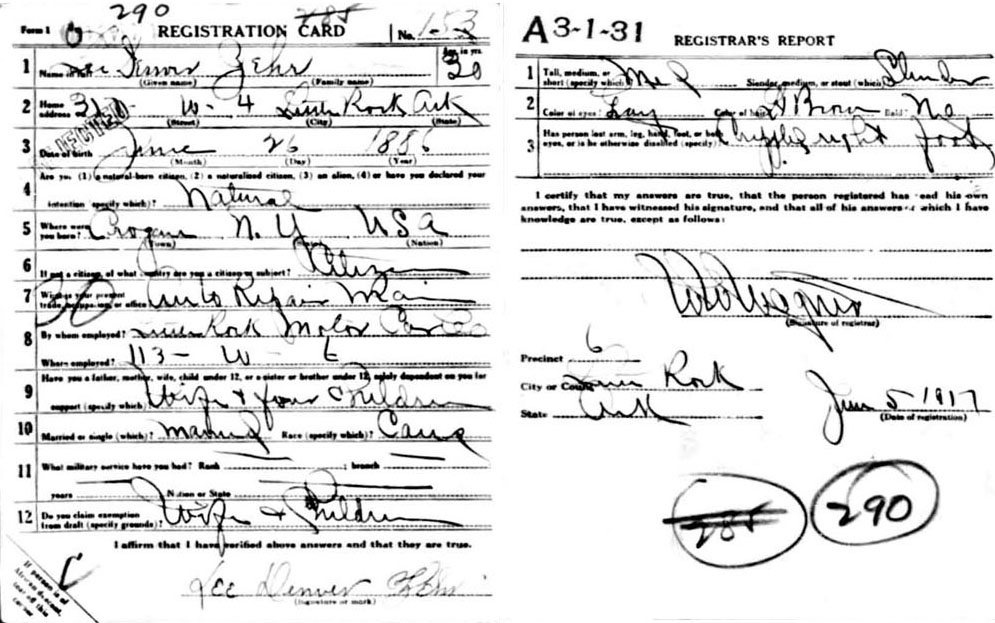 290 285
Form 1 REGISTRATION CARD No. 153
1 Name in full Lee Denver Zehr Age, in yrs. 30
(Given name) (Family name)
2 Home address No. 310 W- 4 Little Rock Ark
(Street) (City) (State)
3 Date of birth June 26 1886
(Month) (Day) (Year)
4 Are you (1) a natural-born citizen, (2) a naturalized citizen, (3) an alien, (4) or have you declared your
intention (specify which)? Natural
5 Where were you born? Croghan N.Y USA
(Town) (State) (Nation)
6 If not a citizen, of what country are you a citizen or subject? Citizen
7 What is your present trade, occupation, or office? Auto Repair Man
8 By whom employed? Little Rock Motor Car Co
Where employed? 113- W- 6
9 Have you a father, mother, wife, child under 12, or a sister or brother under 12, solely dependent on you for
support (specify which)? Wife & four Children
10 Married or single (which)? Married Race (specify which)? Cauc
11 What military service have you had? Rank ; branch
years Nation or State
12 Do you claim exemption from draft (specify grounds)? Wife & Children
I affirm that I have verified above answers and that they are true.
Lee Denver Zehr
(Signature or mark)
If person is of
African descent,
tear off this
corner
A 3-1-31 REGISTRAR'S REPORT
1 Tall, medium, or short (specify which)? Med Slender, medium, or stout (which)? Slender
2 Color of eyes? Gray Color of hair? D Brown Bald? No
3 Has person lost arm, leg, hand, foot, or both eyes, or is he otherwise disabled (specify)? Cripple right foot
I certify that my answers are true, that the person registered has read his own
answers, that I have witnessed his signature, and that all of his answers of which I have
knowledge are true, except as follows:
(Signature of registrar)
Precinct 6
City or County Little Rock
State Ark
June 5 1917
(Date of registration)
285 290